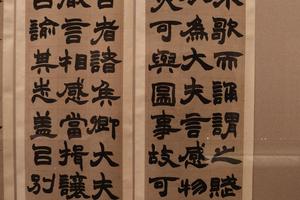 不歌而誦謂之賦
㠯為大夫言感物
美可與圖事故可
古者諸侯卿大夫
微言相感當揖讓
㠯諭其志蓋㠯別